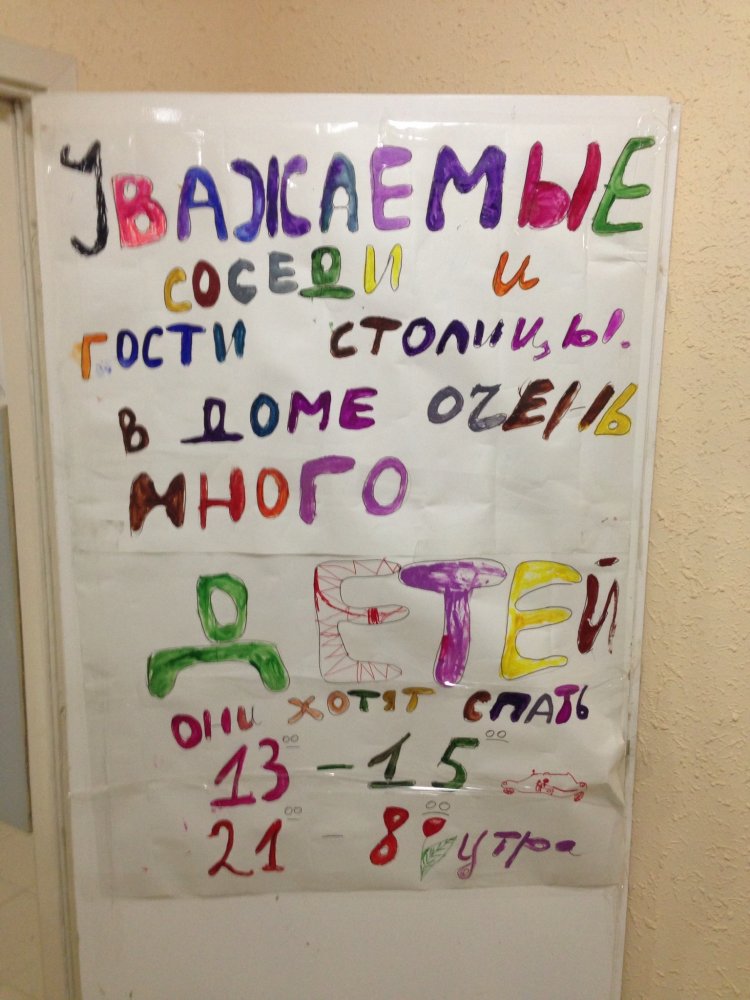 УВАЖАЕМЫЕ
СОСЕДИ И
ГОСТИ СТОЛИЦЫ.
В ДОМЕ ОЧЕНЬ
МНОГО
ДЕТЕЙ
ОНИ ХОТЯТ СПАТЬ
13⁰⁰ - 15⁰⁰
21⁰⁰ - 8⁰⁰ утра